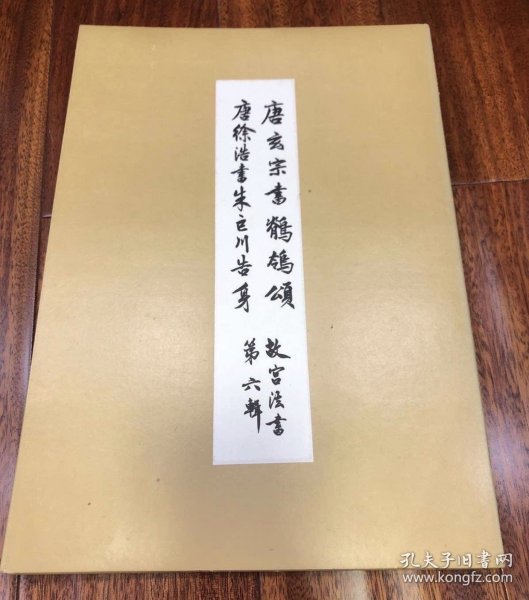 唐玄宗書鶺鴒頌
唐徐浩書朱巨川告身
故宮法書
第六輯
孔夫子旧书网
www.kongfz.com